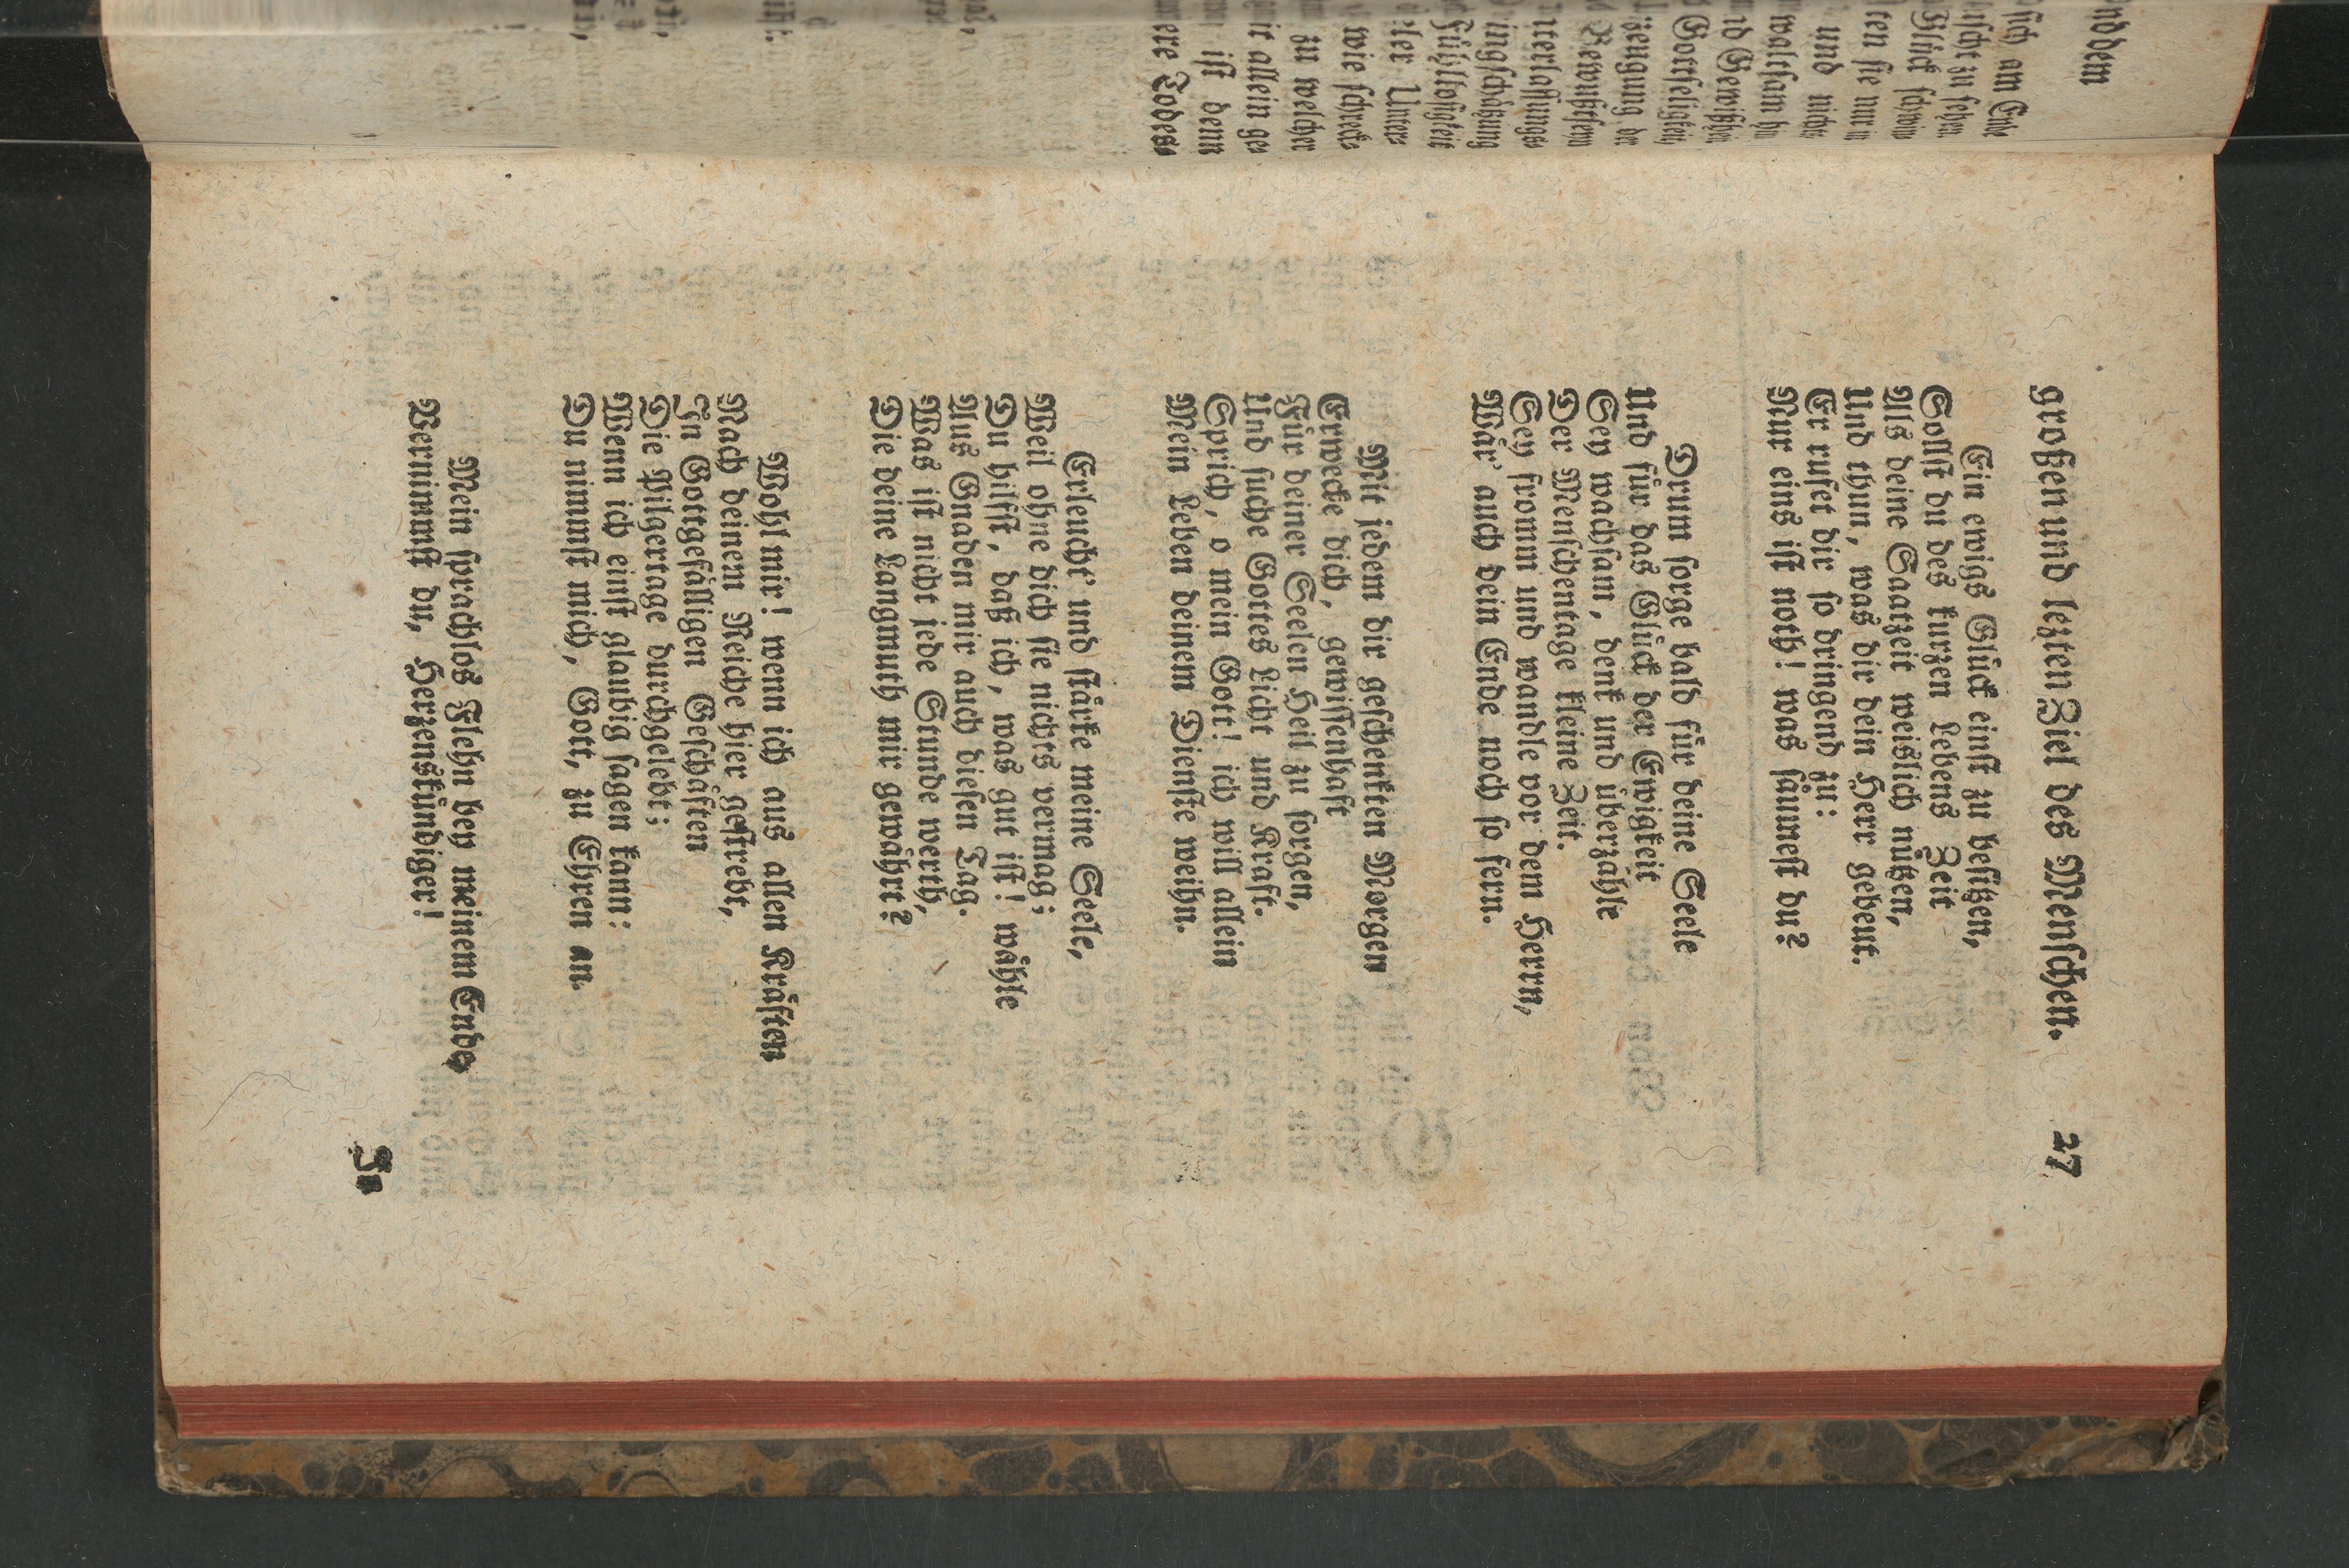 großen und lezten Ziel des Menschen. 27
Ein ewigs Glück einst zu besitzen,
Sollst du des kurzen Lebens Zeit
Als deine Saatzeit weislich nützen,
Und thun, was dir dein Herr gebeut.
Er rufet dir so dringend zu:
Nur eins ist noth! was säumest du?
Drum sorge bald für deine Seele
Und für das Glück der Ewigkeit
Sey wachsam, denk und überzähle
Der Menschentage kleine Zeit.
Sey fromm und wandle vor dem Herrn,
Wär' auch dein Ende noch so fern.
Mit jedem dir geschenkten Morgen
Erwecke dich, gewissenhaft
Für deiner Seelen Heil zu sorgen,
Und suche Gottes Licht und Kraft.
Sprich, o mein Gott! ich will allein
Mein Leben deinem Dienste weihn.
Erleucht' und stärke meine Seele,
Weil ohne dich sie nichts vermag;
Du hilfst, daß ich, was gut ist! wähle
Aus Gnaden mir auch diesen Tag.
Was ist nicht jede Stunde werth,
Die deine Langmuth mir gewährt?
Wohl mir! wenn ich aus allen Kräften
Nach deinem Reiche hier gestrebt,
In Gottgefälligen Geschäften
Die Pilgertage durchgelebt;
Wenn ich einst glaubig sagen kann:
Du nimmst mich, Gott, zu Ehren an.
Mein sprachlos Flehn bey meinem Ende
Vernimmst du, Herzenskündiger!
In